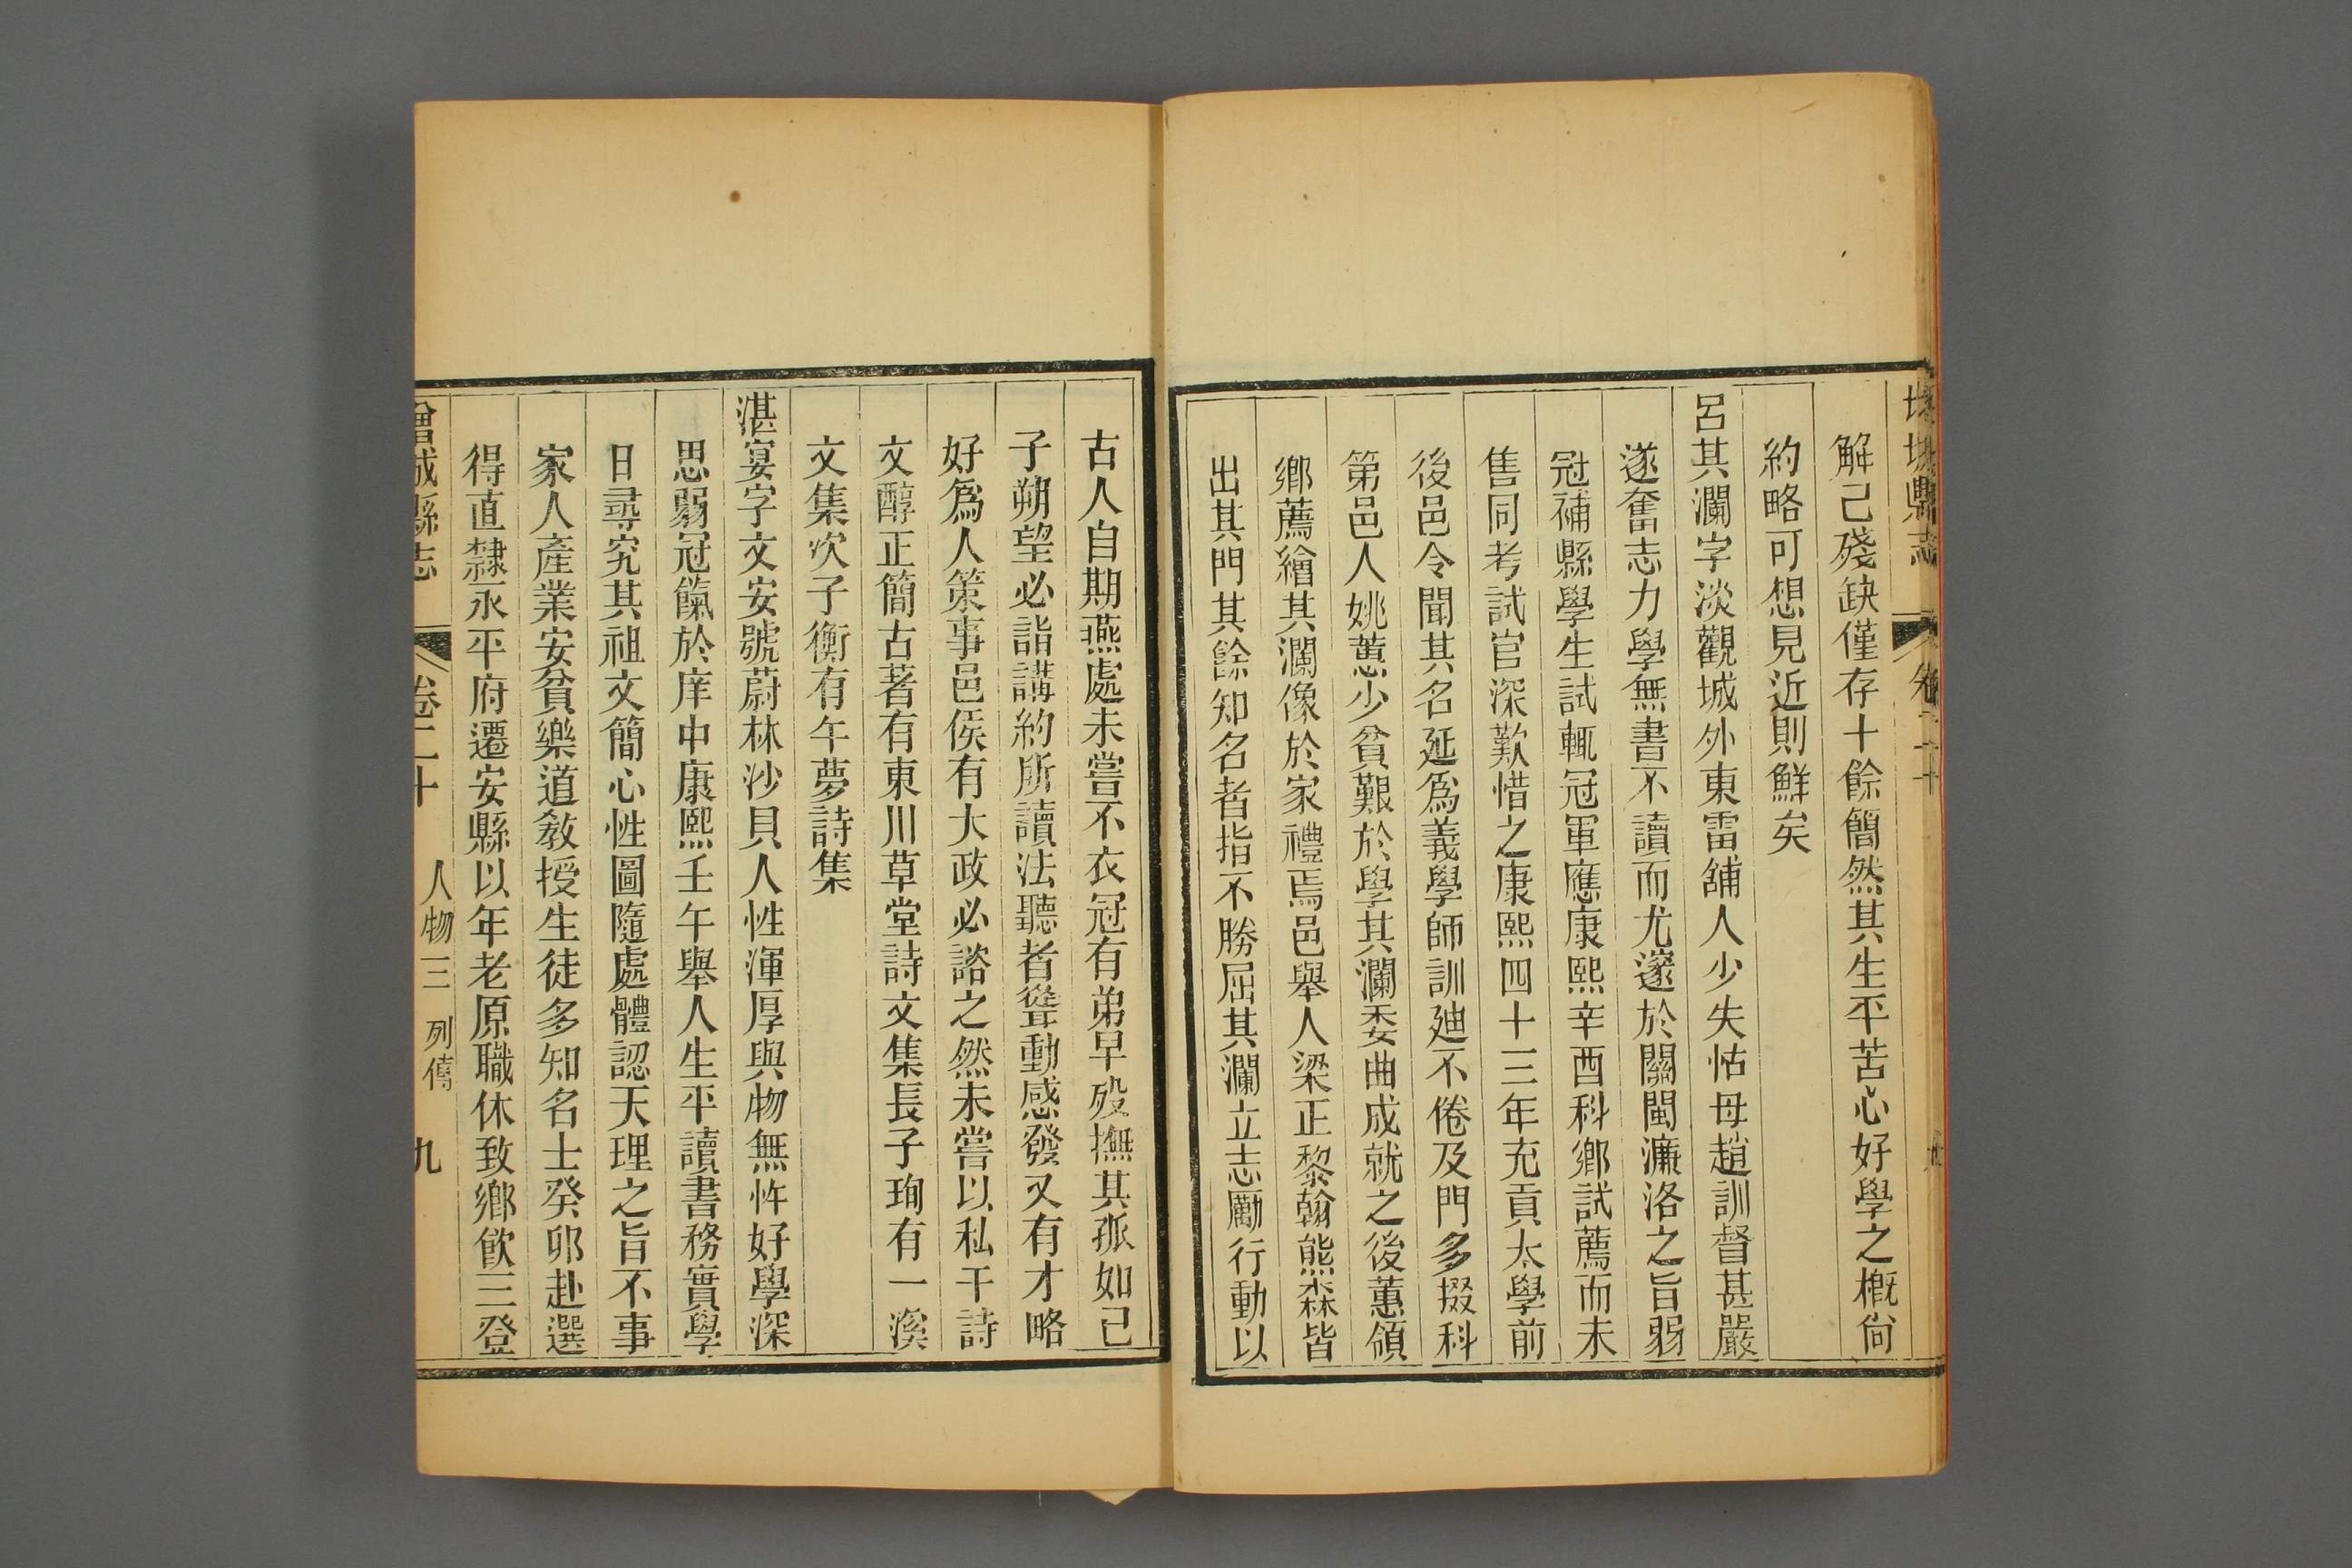 增城縣志 卷二十
解已殘缺僅存十餘簡然其生平苦心好學之槪尙
約略可想見近則鮮矣
呂其瀾字淡觀城外東雷舖人少失怙母趙訓督甚嚴
遂奮志力學無書不讀而尤邃於關閩濂洛之旨弱
冠補縣學生試輒冠軍應康熙辛酉科鄕試薦而未
售同考試官深歎惜之康熙四十三年充貢太學前
後邑令聞其名延爲義學師訓廸不倦及門多掇科
第邑人姚蕙少貧艱於學其瀾委曲成就之後蕙領
鄕薦繪其瀾像於家禮焉邑舉人梁正黎翰熊森皆
出其門其餘知名者指不勝屈其瀾立志勵行動以
古人自期燕處未嘗不衣冠有弟早歿撫其孤如己
子朔望必詣講約所讀法聽者聳動感發又有才略
好爲人策事邑侯有大政必諮之然未嘗以私干詩
文醇正簡古著有東川草堂詩文集長子珣有一溪
文集次子衡有午夢詩集
湛宴字文安號蔚林沙貝人性渾厚與物無忤好學深
思弱冠餼於庠中康熙壬午舉人生平讀書務實學
日尋究其祖文簡心性圖隨處體認天理之旨不事
家人產業安貧樂道敎授生徒多知名士癸卯赴選
得直隸永平府遷安縣以年老原職休致鄕飮三登
增城縣志 卷二十 人物三 列傳 九